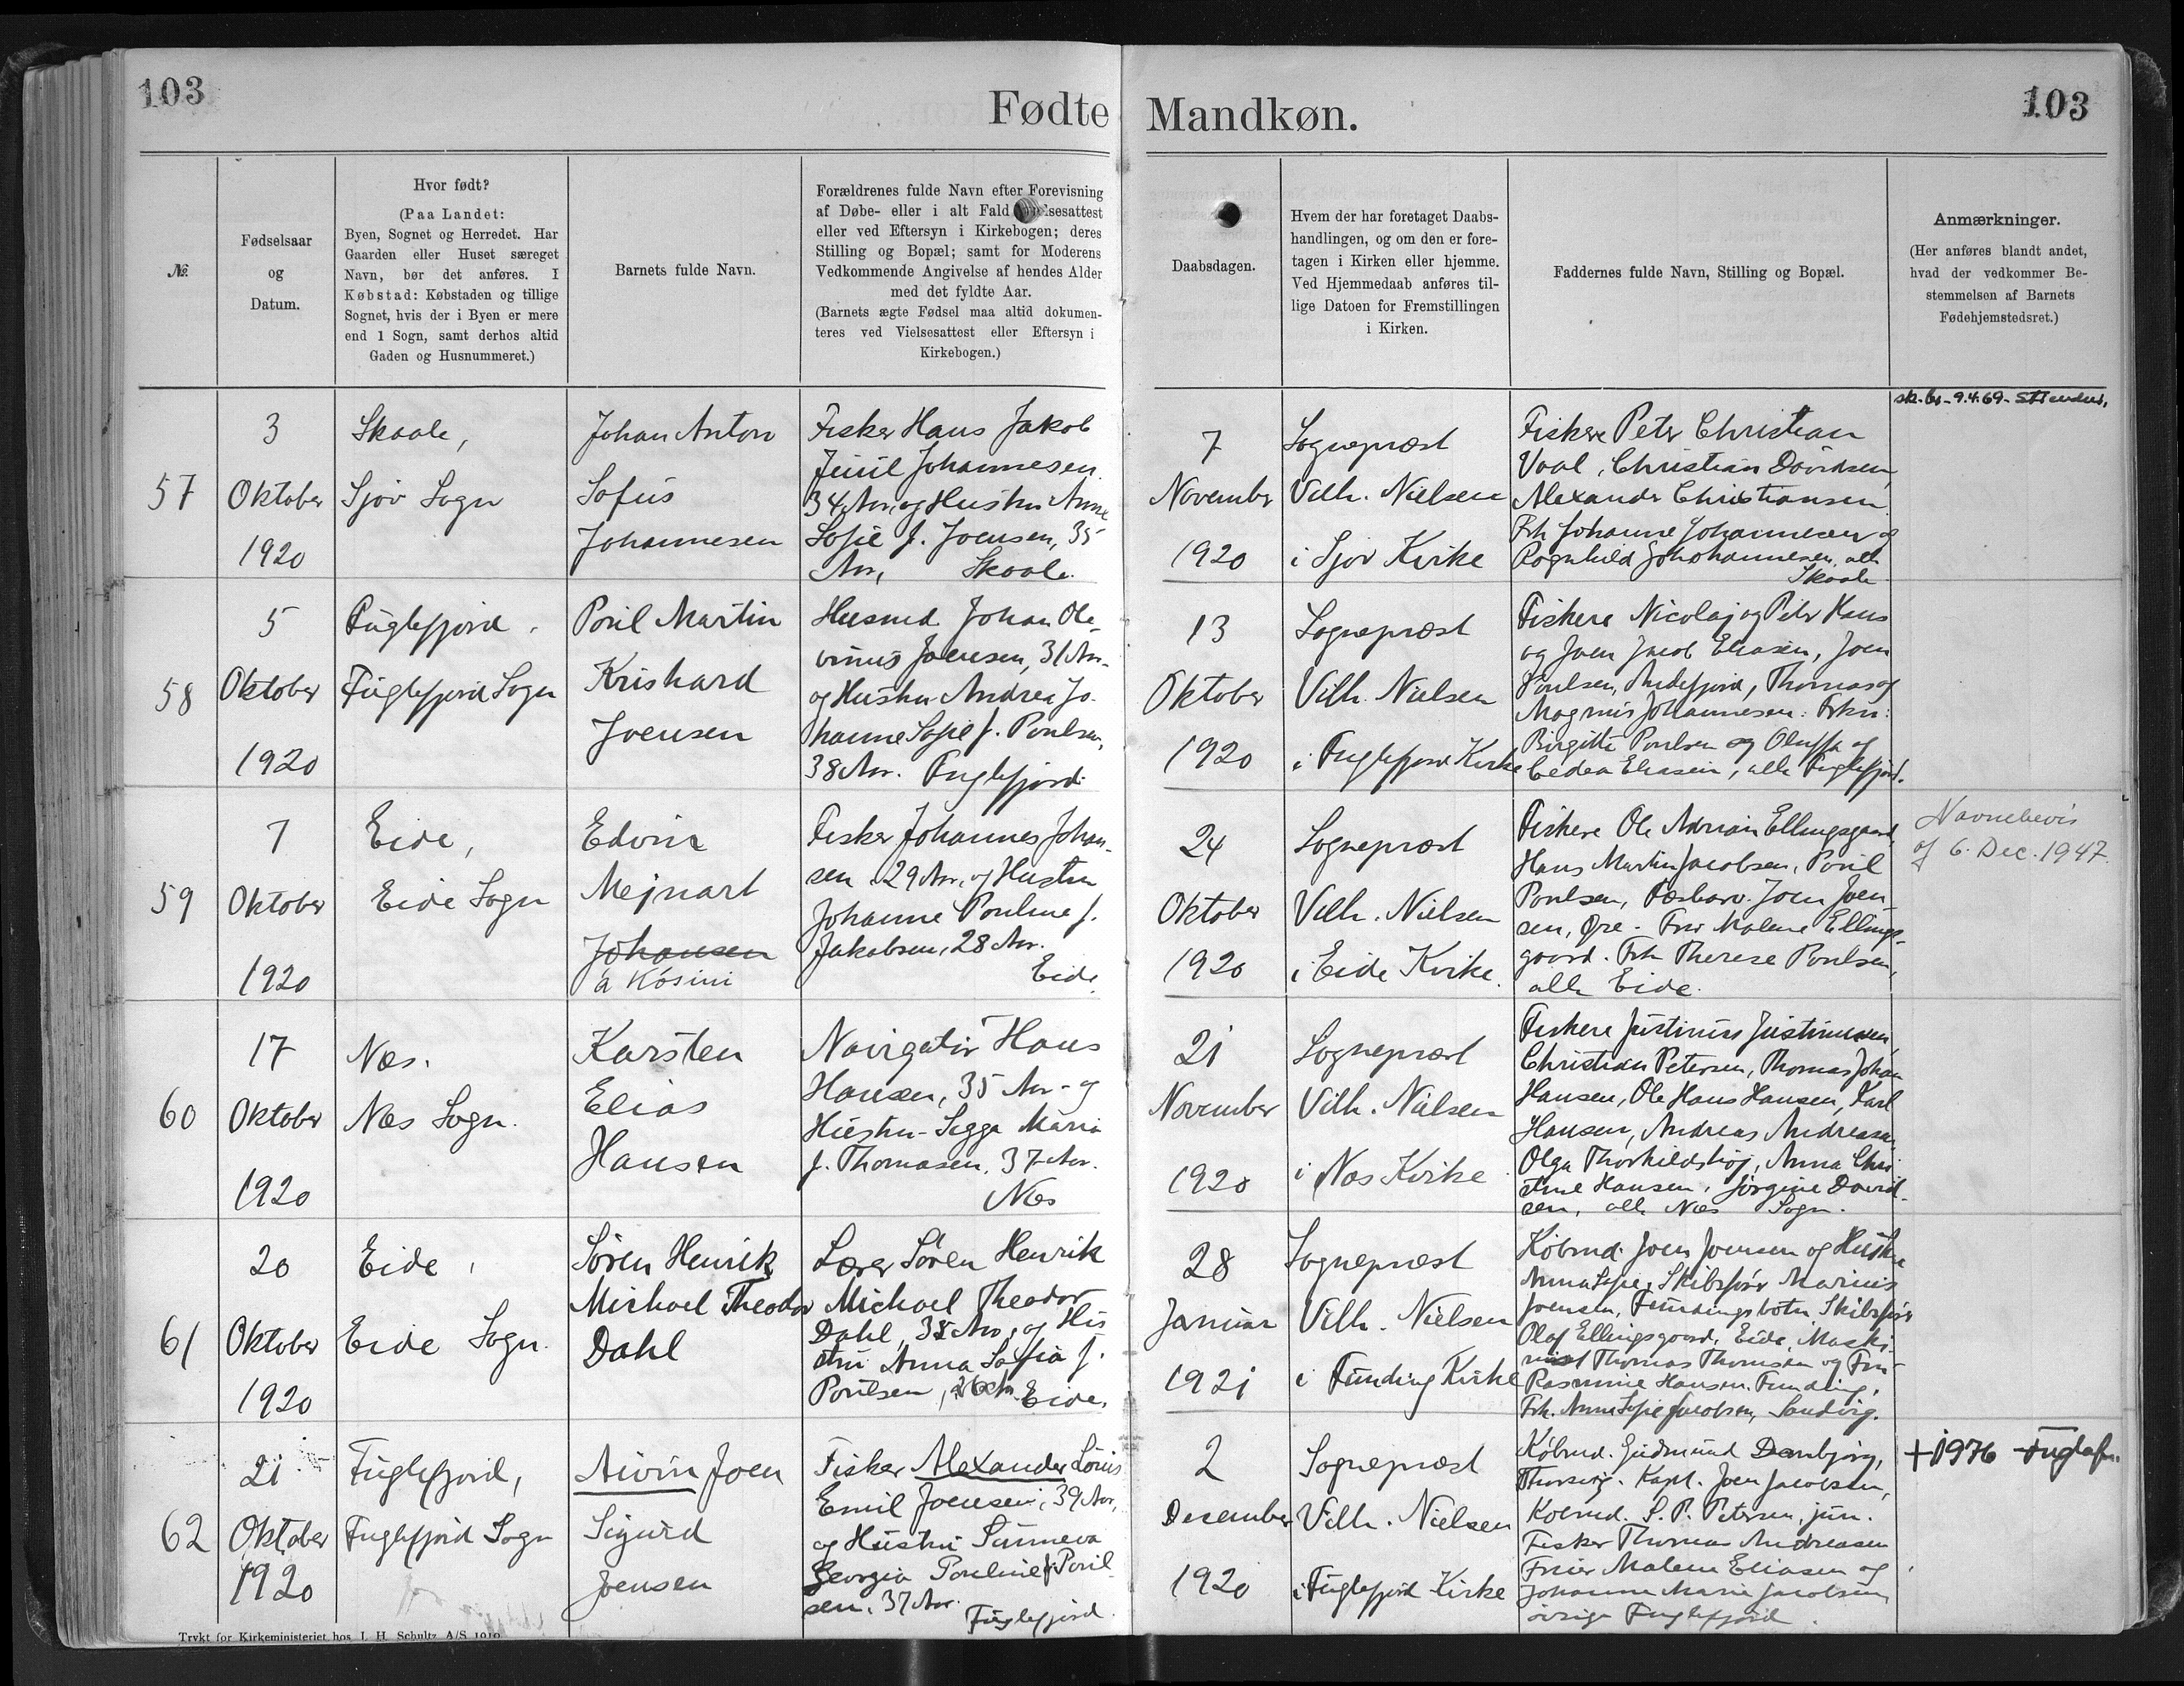 103
Fødte
Mandkøn.
103
№
Fødselsaar
og
Datum.
Hvor født?
(Paa Landet:
Byen, Sognet og Herredet. Har
Gaarden eller Huset særeget
Navn, bør det anføres. I
Købstad: Købstaden og tillige
Sognet, hvis der i Byen er mere
end 1 Sogn, samt derhos altid
Gaden og Husnummeret.)
Barnets fulde Navn.
Forældrenes fulde Navn efter Forevisning
af Døbe- eller i alt Fald
eller ved Eftersyn i Kirkebogen; deres
Stilling og Bopæl; samt for Moderens
Vedkommende Angivelse af hendes Alder
med det fyldte Aar.
(Barnets ægte Fødsel maa altid dokumen-
teres ved Vielsesattest eller Eftersyn i
Kirkebogen.)
Daabsdagen.
Hvem der har foretaget Daabs-
handlingen, og om den er fore-
tagen i Kirken eller hjemme.
Ved Hjemmedaab anføres til-
lige Datoen for Fremstillingen
i Kirken.
Faddernes fulde Navn, Stilling og Bopæl.
Anmærkninger.
(Her anføres blandt andet,
hvad der vedkommer Be-
stemmelsen af Barnets
Fødehjemstedsret.)
57
3
Oktober
1920
Skaale,
Sjov Sogn
Johan Anton
Sofus
Johannesen
Fisker Hans Jakob
Johannesen
34 Aar, og Hustru Anne
Sofie f. Joensen, 35
Aar, Skaale.
7
November
1920
Sognepræst
Vilh. Nielsen
i Sjov Kirke
Fiskere Peter Christian
Vaal, Christian Davidsen,
Alexander Christiansen
Frk Johanne Johannesen og
Ragnhild Johannesen, alle
Skaale
9.4.69
58
5
Oktober
1920
Fuglefjord,
Fuglefjord Sogn
Poul Martin
Krishard
Joensen
Husmd. Johan Ole-
vinus Joensen, 31 Aar
og Hustru Andrea Jo-
hanne Sofie f. Poulsen,
38 Aar. Fuglefjord
13
Oktober
1920
Sognepræst
Vilh. Nielsen
i Fuglefjord Kirke
Fiskere Nicolaj og Peter Hans
og Joen Jacob Eliasen, Joen
Poulsen, Thomas og
Magnus Johannesen.
Birgitte Poulsen og
Eliasen, alle Fuglefjord.
59
7
Oktober
1920
Eide,
Eide Sogn
Edvin
Mejnart
Johansen
á Kósini
Fisker Johannes Johan-
sen 29 Aar, og Hustru
Johanne Pouline f.
Jakobsen, 28 Aar.
Eide.
24
Oktober
1920
Sognepræst
Vilh. Nielsen
i Eide Kirke.
Fiskere Ole Adrian Ellingsgaard,
Hans Martin Jacobsen, Poul
Poulsen, Joen Joen-
sen, Øre. Fru Malene Ellings-
gaard. Frk Therese Poulsen,
alle Eide.
Navnebevis
af 6. Dec. 1947.
60
17
Oktober
1920
Næs.
Næs Sogn.
Karsten
Elias
Hansen
Navigatør Hans
Hansen, 35 Aar - og
Hustru - Sigga Maria
f. Thomasen, 37 Aar.
Næs
21
November
1920
Sognepræst
Vilh. Nielsen
i Næs Kirke
Fiskere Justinus Justinussen,
Christian Petersen, Thomas Johan
Hansen, Ole Hans Hansen, Karl
Hansen, Andreas Andreasen,
Olga Thorkildshøj, Anna Chri-
stine Hansen, Jørgine David-
sen, alle Næs Sogn.
61
20
Oktober
1920
Eide,
Eide Sogn.
Søren Henrik
Michael Theodor
Dahl
Lærer Søren Henrik
Michael Theodor
Dahl, Aar, og Hu-
stru Anna Sofia f.
Poulsen, 26 Aar. Eide,
28
Januar
1921
Sognepræst
Vilh. Nielsen
i Funding Kirke
Købmd. Joen Joensen og Hustru
Anna Sofie, Skibsfører Marius
Joensen, Fundingsbotn, Skibsfører
Olaf Ellingsgaard, Eide, Maski-
nist Thomas Thomsen og Fru
Rasmine Hansen, Funding,
Frk. Anne Sofie Jacobsen, Sandvig.
62
21
Oktober
1920
Fuglefjord,
Fuglefjord Sogn
Aivin Joen
Sigurd
Joensen
Fisker Alexander Louis
Emil Joensen, 39 Aar,
og Hustru Sunneva
Georgia Pouline f. Poul-
sen, 37 Aar.
Fuglefjord.
2
Desember
1920
Sognepræst
Vilh. Nielsen
i Fuglefjord Kirke
Købmd. Gudmund
Kapt. Joen Jacobsen,
Købmd. S. P. Petersen, jun.
Fisker Thomas Andreasen
Fruer Malene Eliasen og
Johanne Marie Jacobsen
øvrige Fuglefjord.
+ 1976
Trykt for Kirkeministeriet hos J. H. Schultz A/S